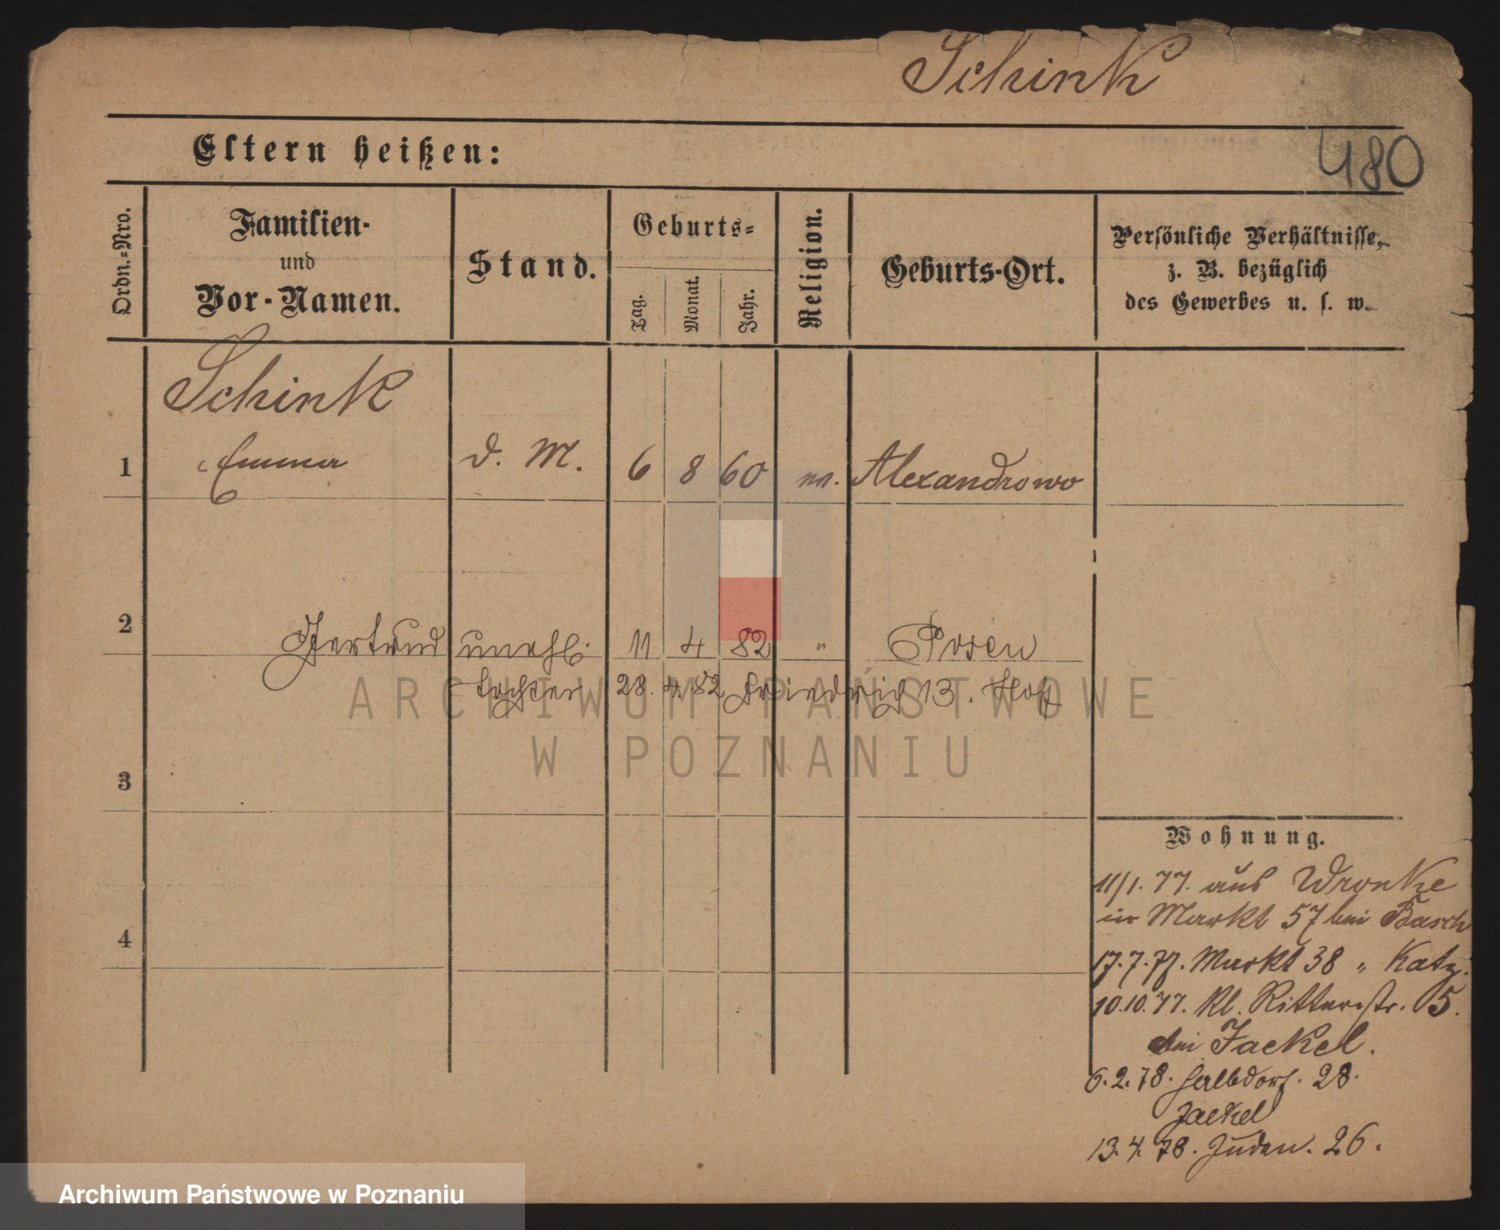 Schink
480
Eltern heißen:
Ordn.-Nro.
Familien-
und
Vor-Namen.
Stand.
Geburts-
Tag.
Monat.
Jahr.
Religion.
Geburts-Ort.
Persönliche Verhältnisse,
z. B. bezüglich
des Gewerbes u. s. w.
Schink
1 Emma d. M. 6 8 60 Alexandrowo
2 Gertrud unehl. 11 4 82 " Posen
Tochter 28. 4. 82 Friedrich 13. Hof
3
4
Wohnung.
11/1. 77. aus Wronke
in Markt 57 bei Basch
17.7.77. Markt 38 " Katz.
10.10.77. Kl. Ritterstr. 5.
bei Jaekel.
6.2.78. Halbdorf. 28.
Jaekel
13.4.78. Juden. 26.
ARCHIWUM PAŃSTWOWE
W POZNANIU
Archiwum Państwowe w Poznaniu